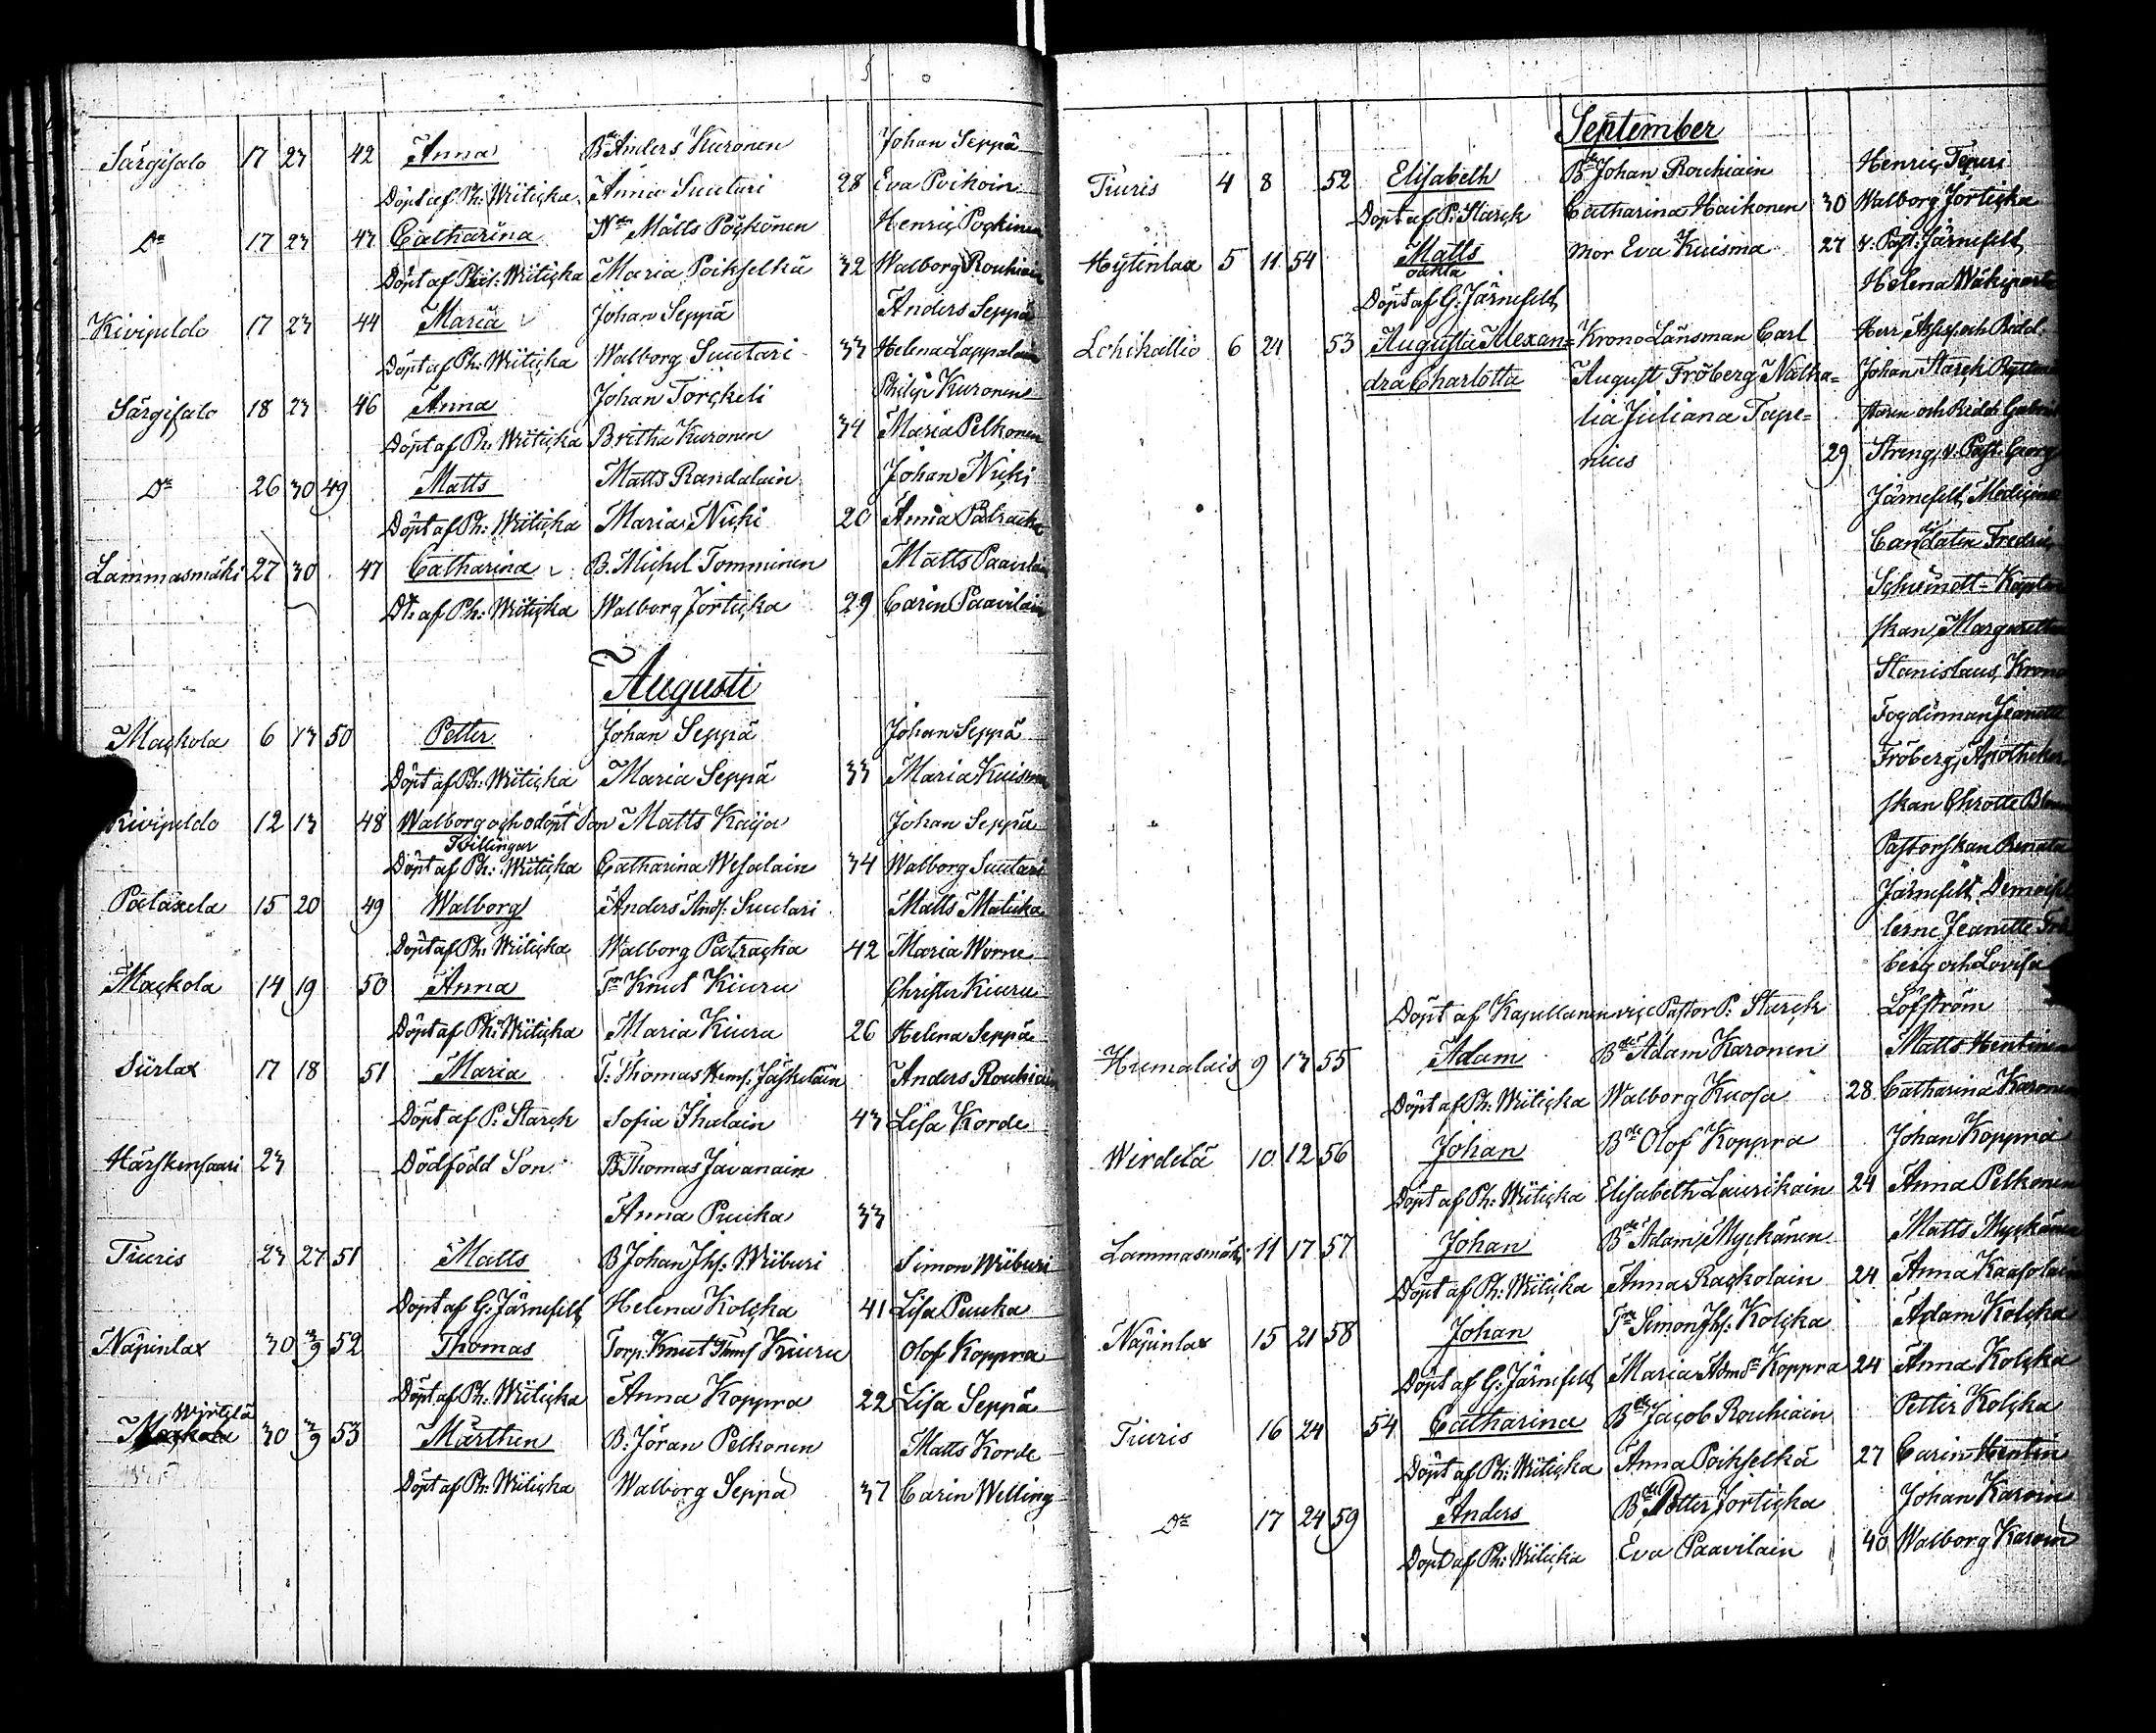 Särgisalo 17 23 42 Anna Bde Anders Kuronen Johan Seppä
Döpt af Ph: Wiiticka Anna Suutari 28 Eva Poikoin
Do 17 23 43 Catharina Nde Matts Pöckönen Henric Pockinen
Döpt af Phil: Wiiticka Maria Poikselkä 32 Walborg Rouhiain
Kivipeldo 17 23 44 Maria Johan Seppä Anders Seppä
Döpt af Ph: Wiiticka Walborg Suutari 33 Helena Lappalain
Särgisalo 18 23 46 Anna Johan Torckeli Philip Kuronen
Döpt af Ph: Wiiticka Britha Kuronen 34 Maria Pelkonen
Do 26 30 49 Matts Matts Randalain Johan Nicki
Döpt af Ph: Wiiticka Maria Nicki 20 Anna Patracka
Lammasmäki 27 30 47 Catharina B. Michel Tomminen Matts Paavilain
Dt. af Ph: Wiiticka Walborg Jorticka 29 Carin Paavilain
Augusti
Mackola 6 13 50 Petter Johan Seppä Johan Seppä
Döpt af Ph: Wiiticka Maria Seppä 33 Maria Kuisma
Kivipeldo 12 13 48 Walborg och odöpt Son Matts Kaija Johan Seppä
Tvillingar
Döpt af Ph: Wiiticka Catharina Wesalain 34 Walborg Suutari
15 20 49 Walborg Anders And: Suutari Matts Maticka
Döpt af Ph: Wiiticka Walborg Patracka 42 Maria Worne
Mackola 14 19 50 Anna Tr Knut Kiuru Christer Kiuru
Döpt af Ph: Wiiticka Maria Kiuru 26 Helena Seppä
Siirlax 17 18 51 Maria T: Thomas Hens: Jäskeläin Anders Rouhiain
Döpt af P: Starck Sofia Ihalain 43 Lisa Korde
Härskinsaari 23 Dödfödd Son B Thomas Javanain
Anna Puuka 33
Tiuris 23 27 51 Matts B Johan Jhs: Wiiburi Simon Wiiburi
Döpt af G: Järnefelt Helena Kolcka 41 Lisa Puuka
Näpinlax 30 3/9 52 Thomas Torp: Knut Thms Kiuru Olof Koppra
Döpt af Ph: Wiiticka Anna Koppra 22 Lisa Seppä
Wirtelä
Mackola 30 3/9 53 Mårthen B: Jöran Pelkonen Matts Korde
Döpt af Ph: Wiiticka Walborg Seppä 37 Carin Welling
September
Tiuris 4 8 52 Elisabeth Bde Johan Rouhiain Henric Teuri
Döpt af P: Starck Catharina Haikonen 30 Walborg Jorticka
Hytinlax 5 11 54 Matts Mor Eva Kuisma 27 v: Past: Järnefelt
oäkta Helena Wäkiparta
Döpt af G: Järnefelt
Lohikallio 6 21 53 Augusta Alexan= Krono Länsman Carl Herr
dra Charlotta August Fröberg Natha= Johan Starck
lia Juliana Tape= och
nius 29 Streng, v. Past: Georg
Järnefelt, Medicine
Candidaten Fredric
Schwindt Kapten
skan Margaretha
Stanislaus, Krono
Fogdinnan Jeanette
Fröberg, Apotheker
skan Chrotte
Pastorskan Renata
Järnefelt, Demoisel
lerne Jeanette Frö
berg och Lovisa
Döpt af Kapellanen vice Pastor P: Starck Löfström
Humalais 9 13 55 Adam Bde Adam Karonen Matts Hentinen
Döpt af Ph: Wiiticka Walborg Kuosa 28 Catharina Karonen
Wirdelä 10 12 56 Johan Bde Olof Koppra Johan Koppra
Döpt af Ph: Wiiticka Elisabeth Laurikain 24 Anna Pelkonen
Lammasmäki 11 17 57 Johan Bde Adam Myckänen Matts Myckänen
Döpt af Ph: Wiiticka Anna Rackolain 24 Anna Kaasolain
Näpinlax 15 21 58 Johan Tr Simon Jhs: Kolcka Adam Kolcka
Döpt af G: Järnefelt Maria Admdr Koppra 24 Anna Kolcka
Tiuris 16 24 54 Catharina Bde Jacob Rouhiain Petter Kolcka
Döpt af Ph: Wiiticka Anna Poikselkä 27 Carin Hentin
Do 17 24 59 Anders Bde Petter Jorticka Johan Karoin
Döpt af Ph: Wiiticka Eva Paavilain 40 Walborg Karoin